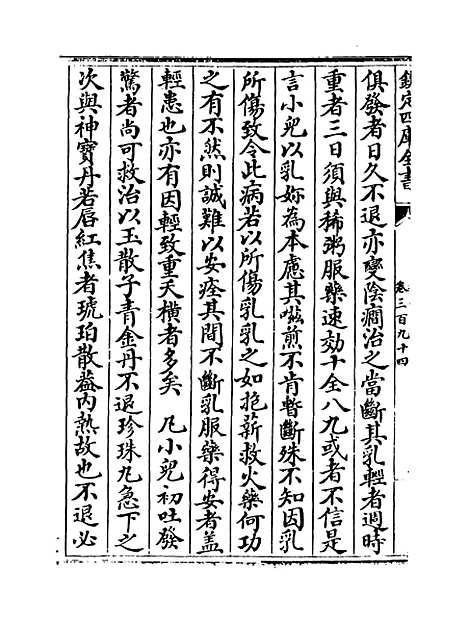 欽定四庫全書
卷三百九十四
俱發者日久不退亦變陰癎治之當斷其乳輕者週時
重者三日須與稀粥服藥速効十全八九或者不信是
言小兒以乳妳為本慮其㗜煎不肯暫斷殊不知因乳
所傷致令此病若以所傷乳乳之如抱薪救火藥何功
之有不然則誠難以安痊其間不斷乳服藥得安者蓋
輕患也亦有因輕致重夭橫者多矣 凡小兒初吐發
驚者尚可救治以玉散子青金丹不退珍珠丸急下之
次與神寶丹若唇紅焦者琥珀散蓋内熱故也不退必